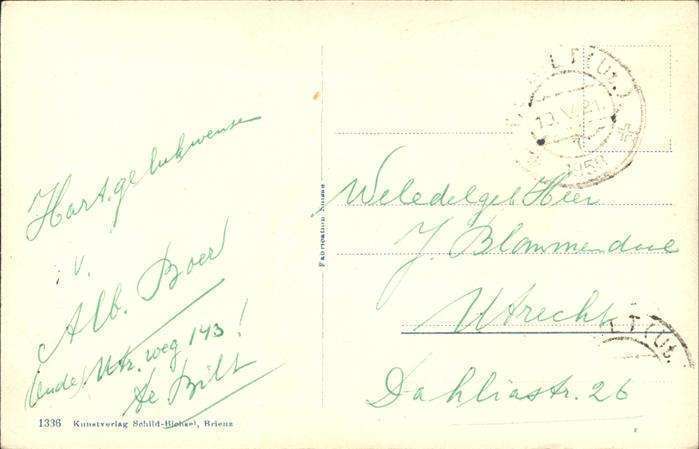 Hart. gelukwensen
v.
Alb. Boer
(oude) Utr. weg 143!
de Bilt
1336 Kunstverlag Schild-Bichsel, Brienz
Fabrication Suisse
LT (Ut.)
13.V.21.
1959
WelEdelgeb Heer
J. Blommendaal
Utrecht
LT (Ut.
Dahliastr. 26